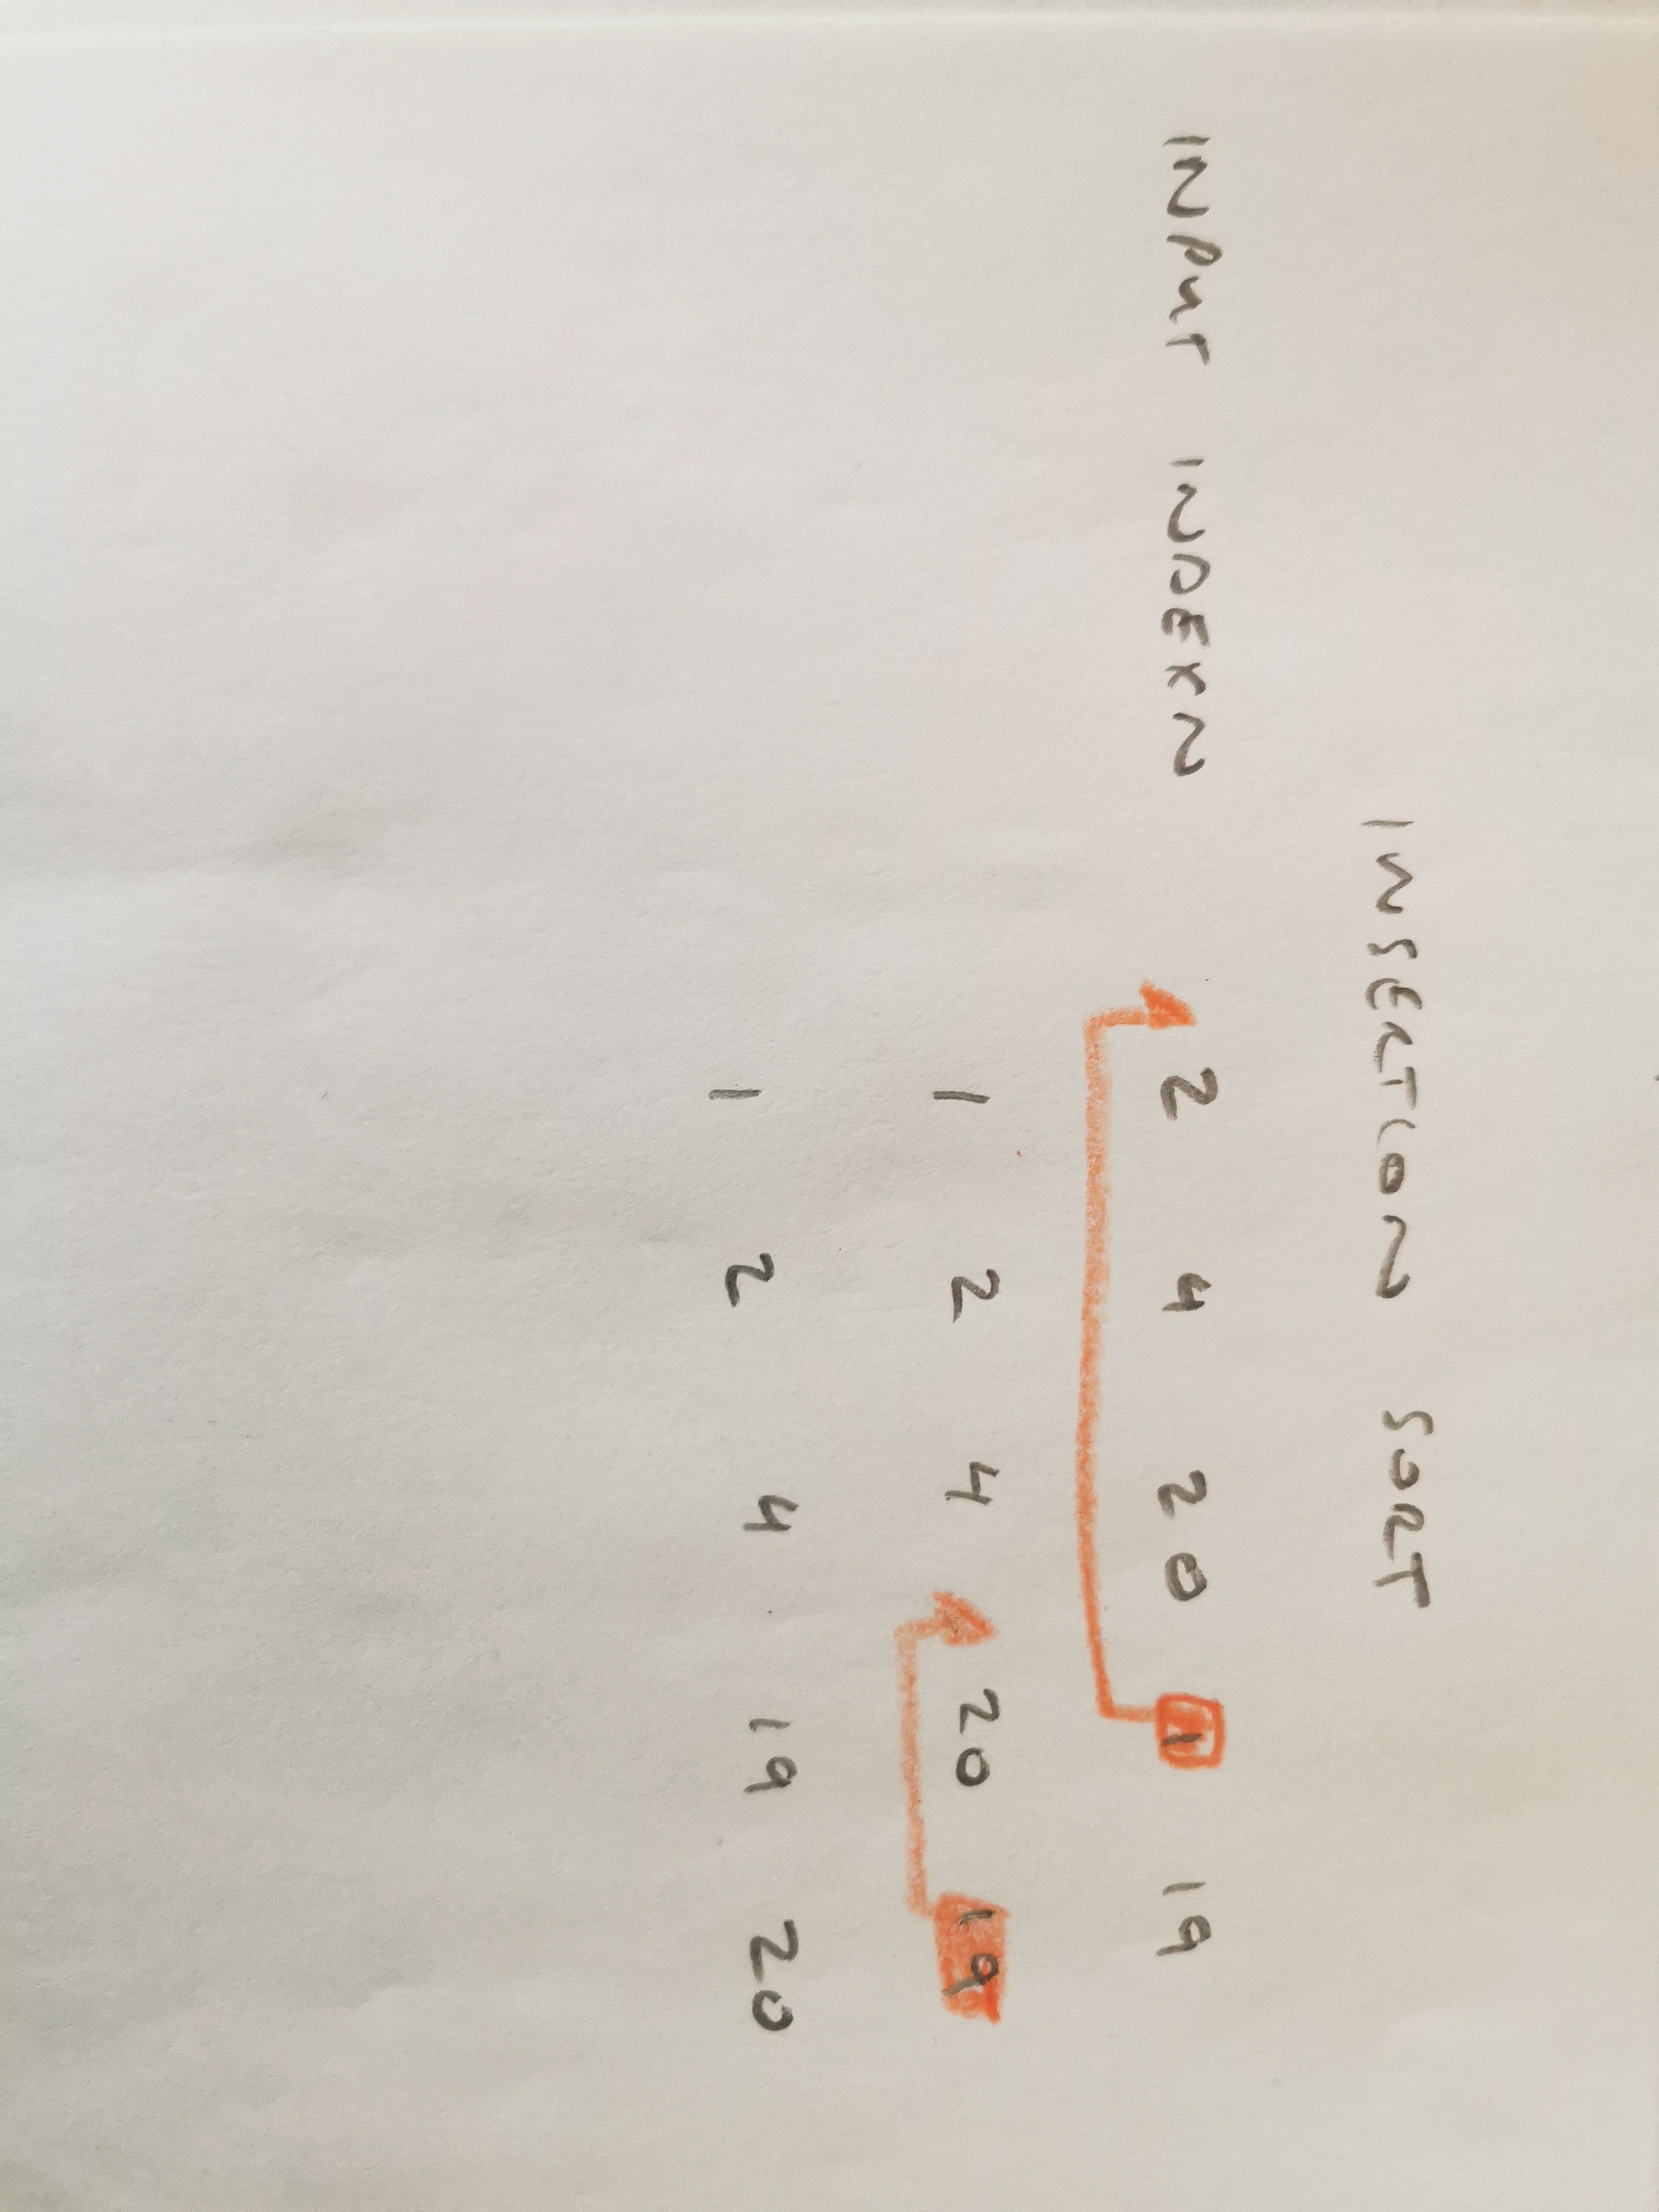 INSERTION SORT
INPUT INDEXN 2 4 20 1 19
1 2 4 20 19
1 2 4 19 20